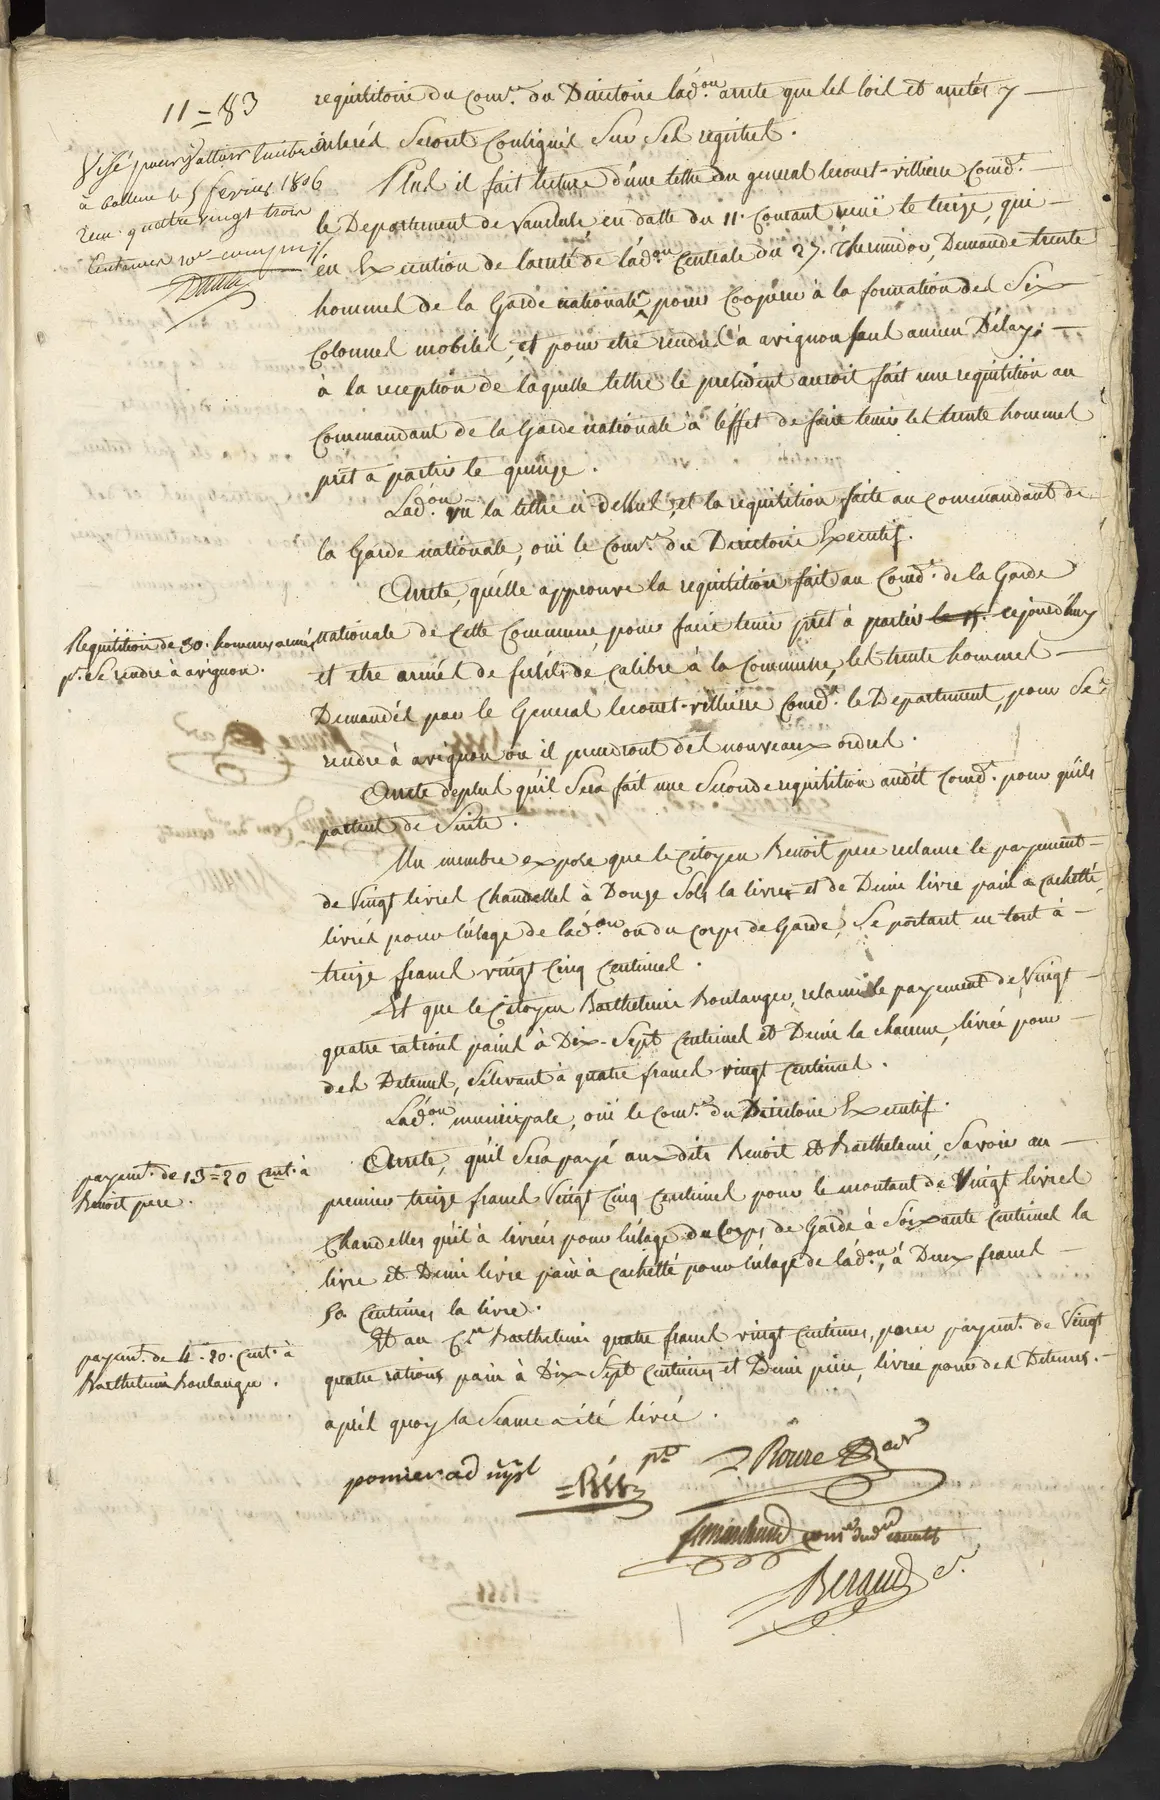 11 = 83
Visé pour valloir timbre
à Bollene le 5 fevrier 1806
Reçu quatre vingt trois
Centimes
requisitoire du com.re du Directoire l'ad.on arrete que les loix et arretés y
inserés seront consignés sur ses registres.
Plus il fait lecture d'une lettre du general lecourt-villiere Comd.t
le Departement de Vaucluse, en datte du 11. Courant remi le treize, qui
en Execution de l'arreté de l'ad.on Centrale du 27. thermidor, Demande trente
hommes de la Garde nationale pour Cooperer à la formation des Six
Colonnes mobiles, et pour etre rendus à avignon sans aucun Délay.
à la reception de laquelle lettre le president auroit fait une requisition au
Commandant de la Garde nationale à l'effet de faire tenir les trente hommes
pret a partir le quinze.
L'ad.on vû la lettre ci-dessus, et la requisition faite au commandant de
la Garde nationale, oui le Com.re du Directoire Executif.
Arrete, qu'elle approuve la requisition fait au Comd.t de la Garde
Requisition de 30. hommes armés
p.r se rendre à avignon.
nationale de Cette Commune pour faire tenir pret à partir le 15. cejourd'huy
et etre armés de fusils de calibre à la Commune, les trente hommes
Demandés par le General lecourt-villiere Comd.t le Departement, pour Se
rendre à avignon ou il prendront des nouveaux ordres.
Arrete deplus qu'il Sera fait une Seconde requisition audit Comd.t pour qu'ils
partent de Suite.
Un membre expose que le Citoyen Benoit pere reclame le payement
de Vingt livres Chandelles à Douze Sols la livre et de Demi livre pain a cachetté
livrés pour l'usage de l'ad.on ou du Corps de Garde, Se portant en tout à
treize francs vingt Cinq Centimes.
Et que le Citoyen Barthelemi Boulanger, reclame le payement de Vingt
quatre rations pains à Dix-Sept Centimes et Demi la chacune, livrée pour
des Detenus, S'elevant à quatre francs vingt Centimes.
L'ad.on municipale, oui le Com.re du Directoire Executif.
Arrete, qu'il Sera payé auxdits Benoit et Barthelemi, Savoir au
payem.t de 13 = 20 cent.s à
Benoit pere.
premier treize francs Vingt Cinq Centimes pour le montant de Vingt livres
Chandelles qu'il à livrées pour l'usage du Corps de Garde à Soixante Centimes la
livre et Demi livre pain à cachetté pour l'usage de l'ad.on, à Deux francs
50. Centimes la livre.
Et au C.en Barthelemi quatre francs vingt Centimes, pour payem.t de Vingt
payem.t de 4 = 20. cent.s à
Barthelemi Boulanger.
quatre rations pain à Dix-Sept Centimes et Demi piece, livrée pour des Detenus.
après quoy la Seance a été levée.
pommier ad mpl
Roure
Marchand com.re du d.re executif
Beraud